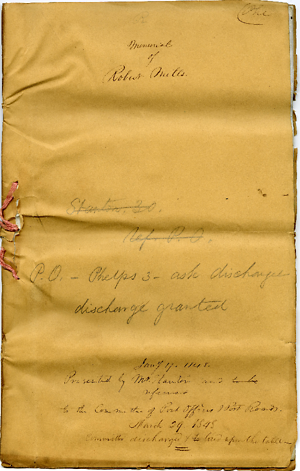 Ohio
Memorial
of
Robert Mills
Ref. P. O.
P.O. - Phelps 3 - ask discharge
discharge granted
Jany 17. 1848.
Presented by Mr. and to be
referred
to the Committee of Post Offices & Post Roads.
March 29, 1848
Committee discharged & to lie upon the table